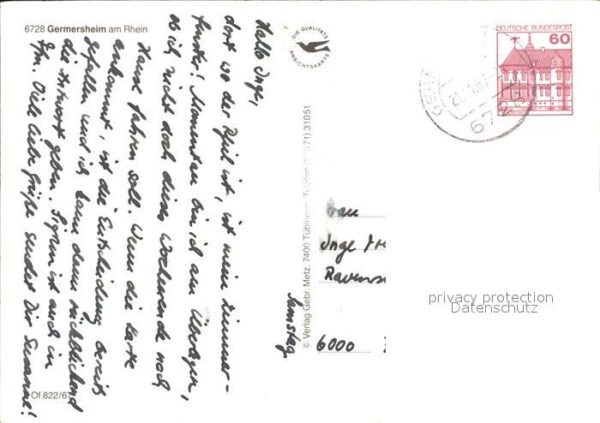 6728 Germersheim am Rhein
Hallo Inge,
dort wo der Pfeil ist, ist mein Zimmer-
fenster! Momentan bin ich am Überlegen,
ob ich nicht doch dieses Wochenende nach
Hause fahren soll. Wenn die Karte
ankommt, ist die Entscheidung bereits
gefallen und ich kann dann rückblickend
die Antwort geben. Sigrun ist auch in
Ghm. Viele liebe Grüße sendet Dir Susanne!
Of 822/67
DIE QUALITÄTS
ANSICHTSKARTE
© Verlag Gebr. Metz, 7400 Tübingen, Telefon 31051
Samstag
DEUTSCHE BUNDESPOST
60
GERM
67
Frau
Inge
Ravens
6000
privacy protection
Datenschutz